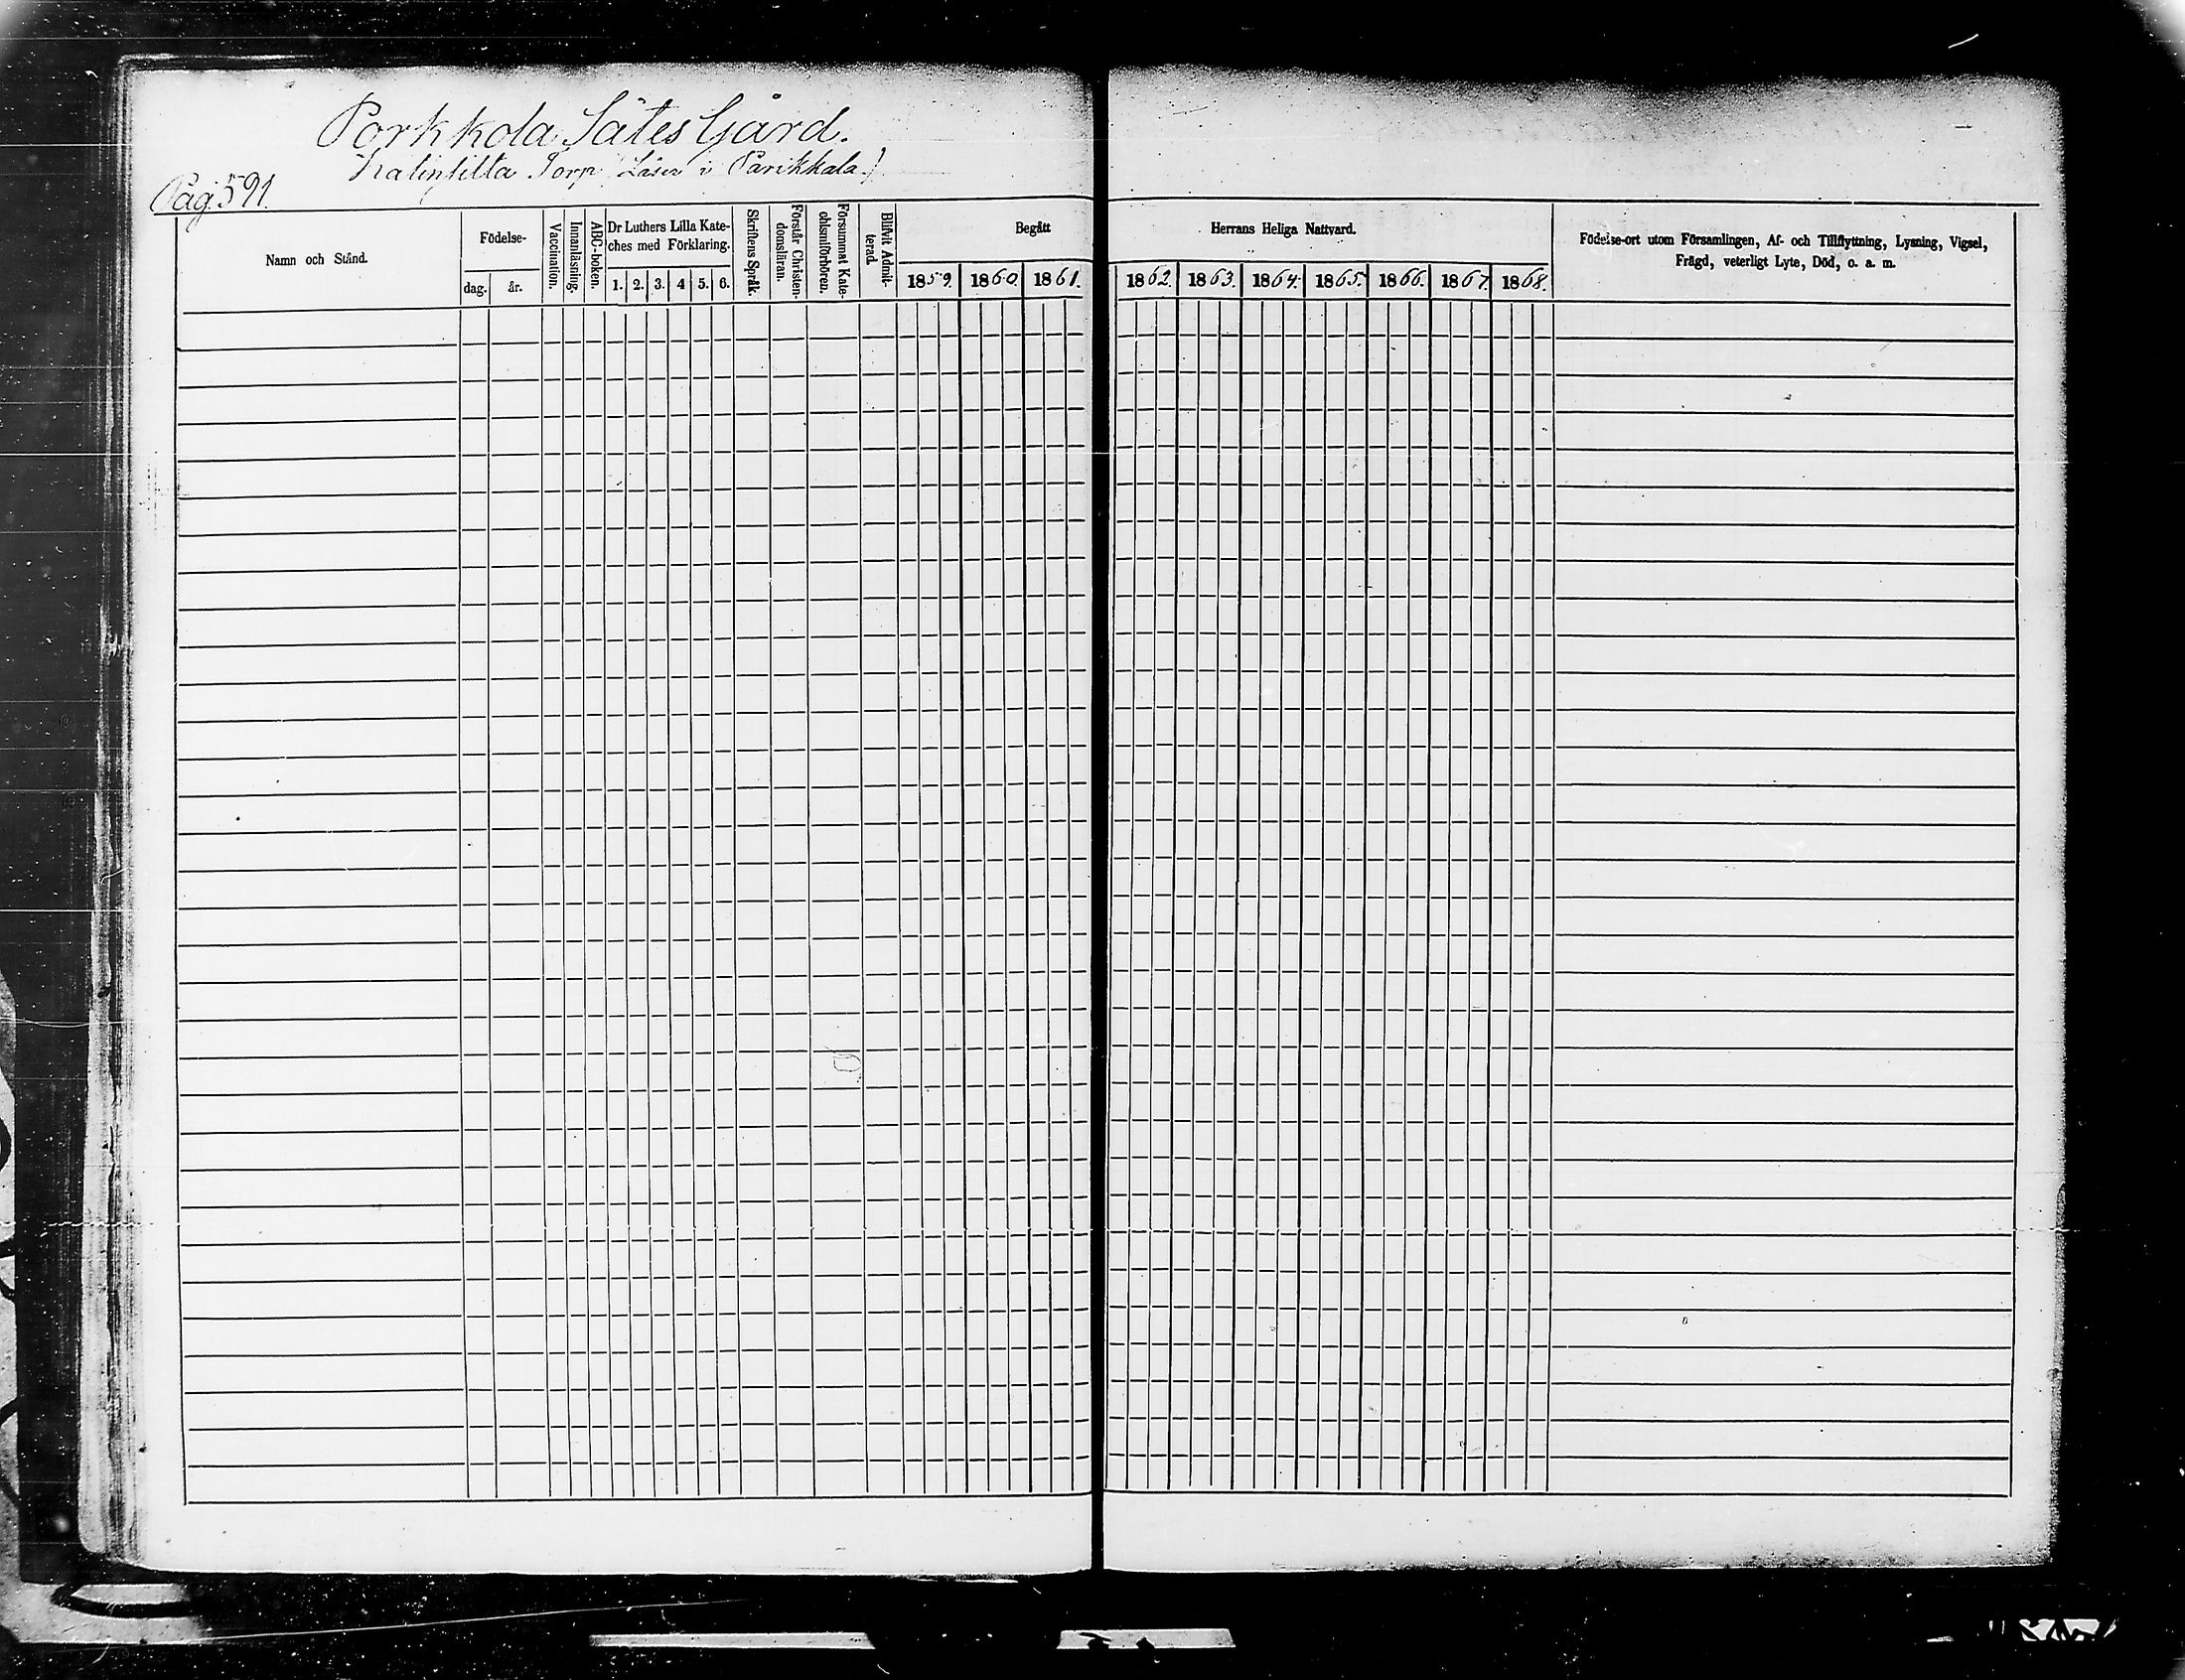 Porkkola Sätes Gård.
Torp (Läser i Parikkala)
Pag. 591.
Namn och Stånd.
Födelse-
dag.
år.
Vaccination.
Innanläsning.
ABC-boken.
Dr Luthers Lilla Kate-
ches med Förklaring.
1. 2. 3. 4 5. 6.
Skriftens Språk.
Förstår Christen-
domsläran.
Försummat Kate-
chismiförhören.
Blifvit Admit-
terad.
Begått
1859. 1860. 1861.
Herrans Heliga Nattvard.
1862. 1863. 1864. 1865. 1866. 1867. 1868.
Födelse-ort utom Församlingen, Af- och Tillflyttning, Lysning, Vigsel,
Frägd, veterligt Lyte, Död, o. a. m.